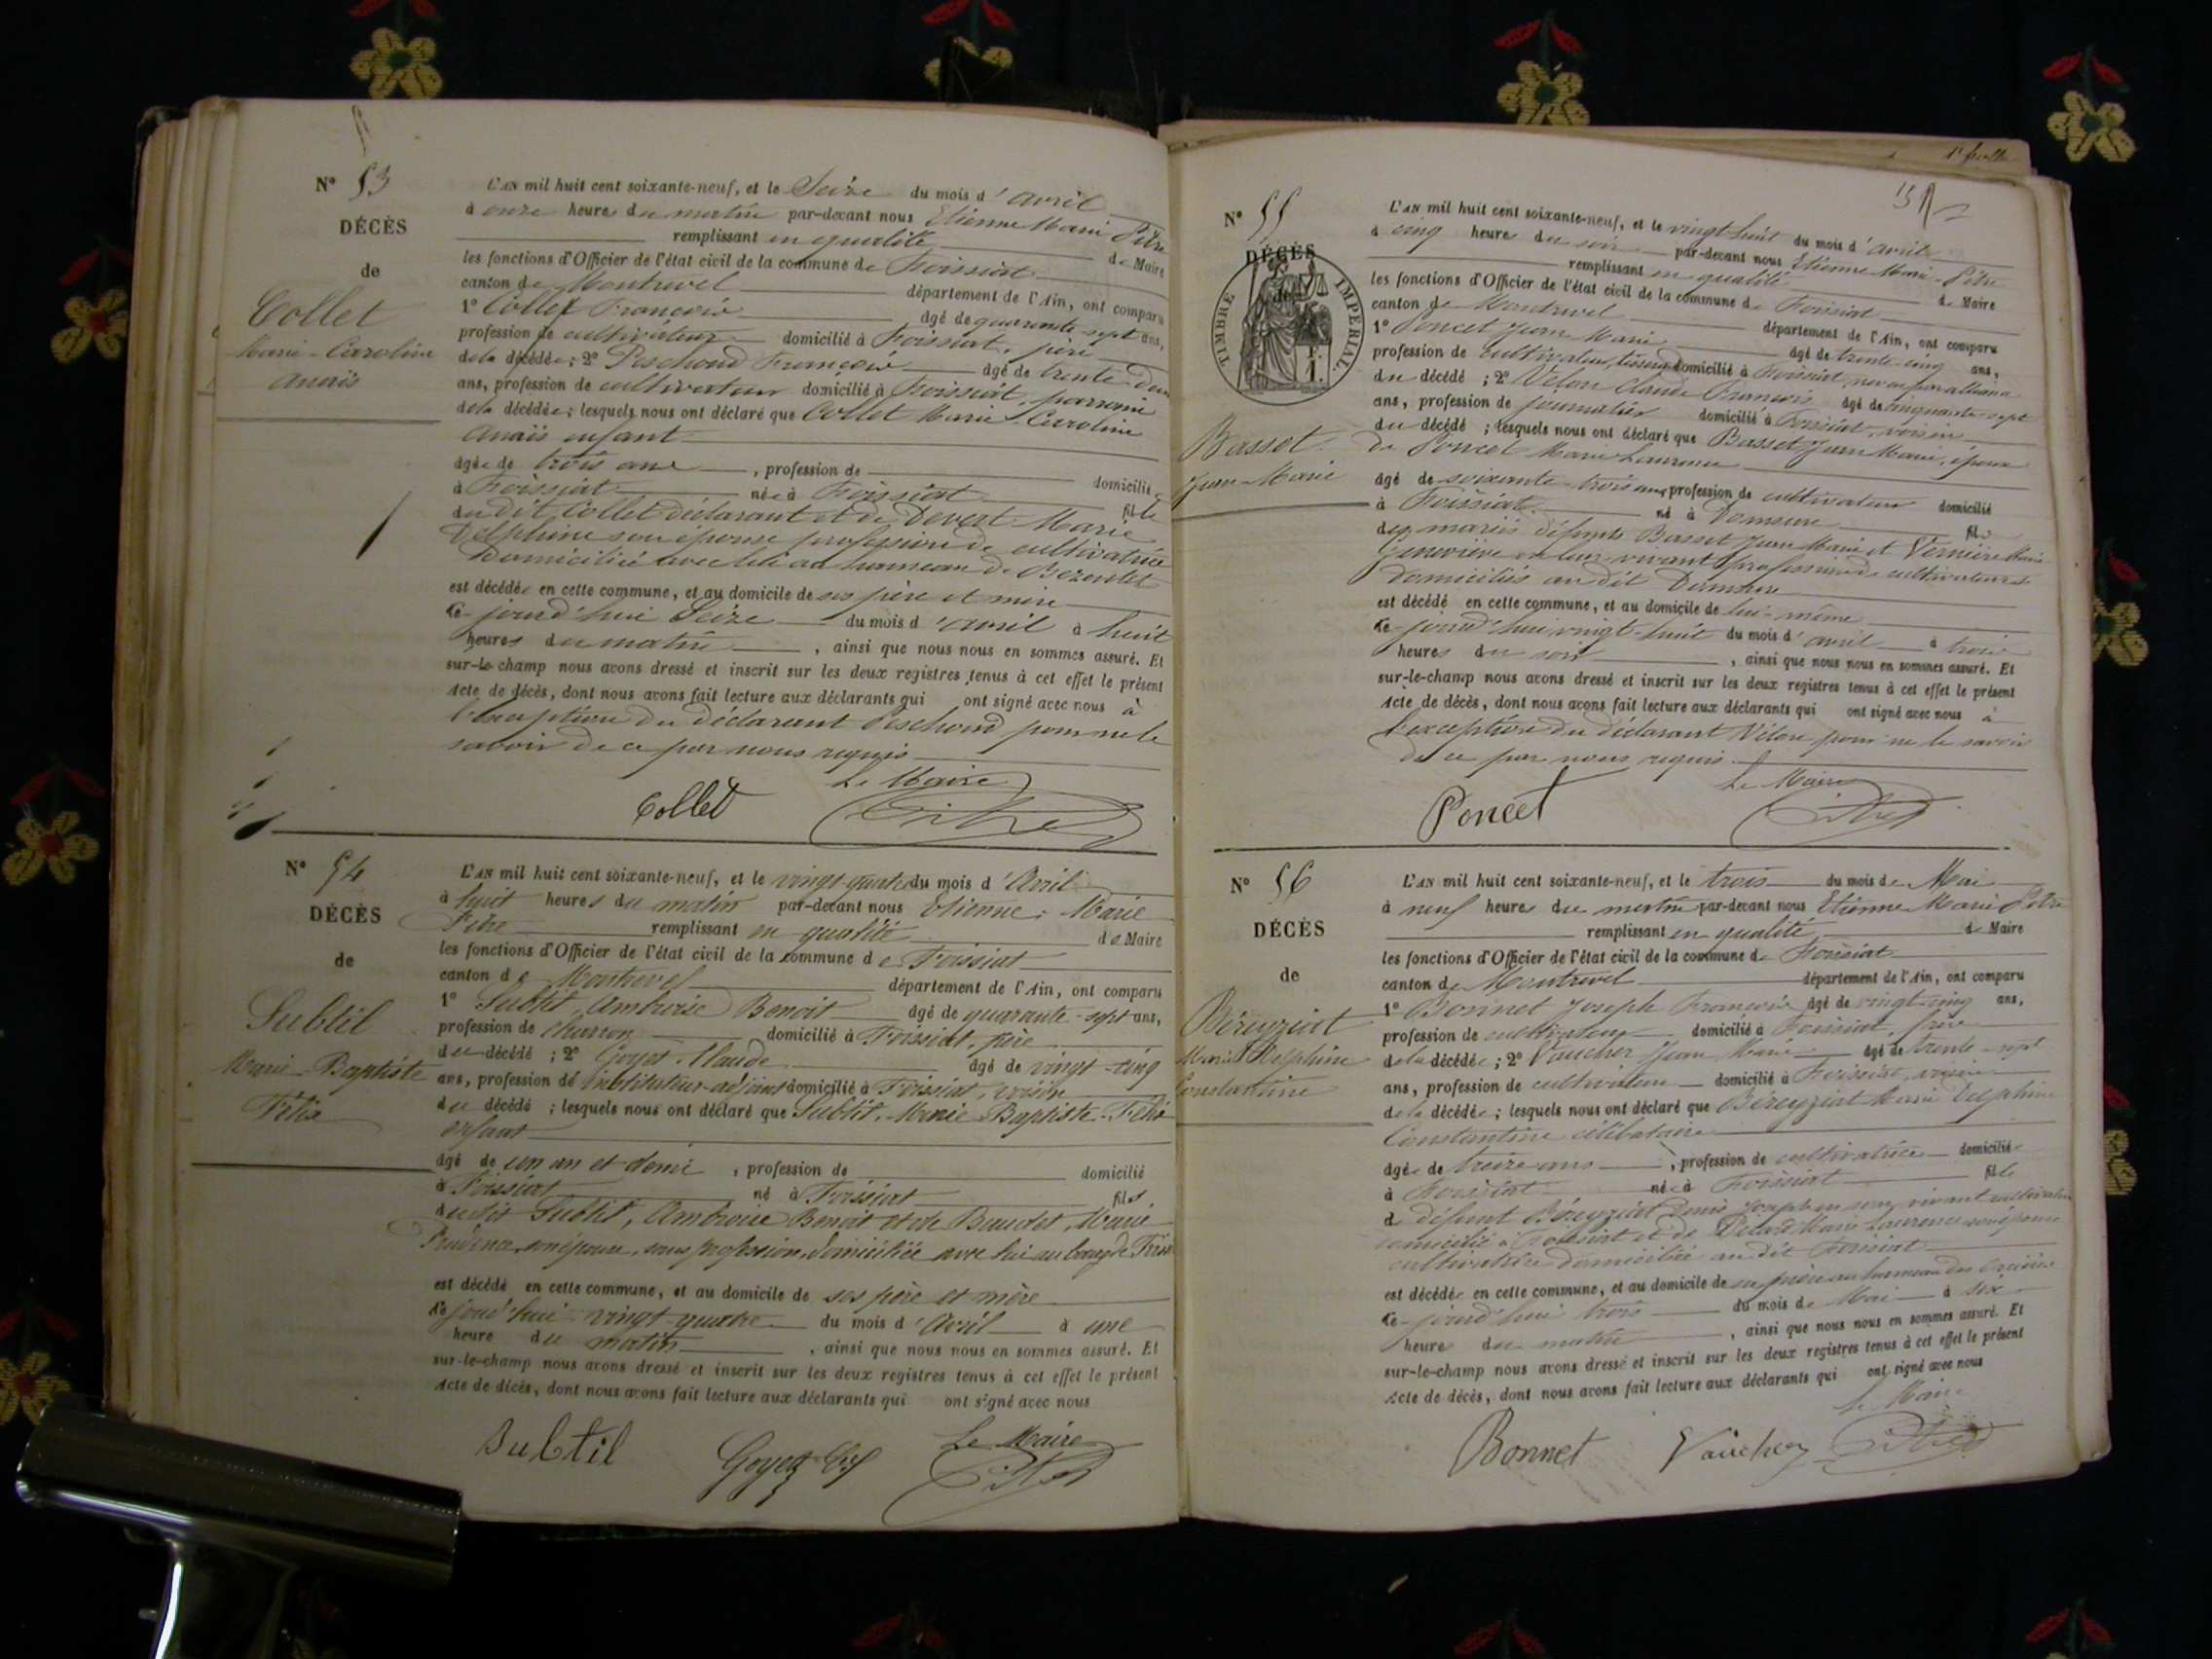 N° 53
DÉCÈS
de
Collet
Marie-Caroline
Anaïs
L'AN mil huit cent soixante-neuf, et le Seize du mois d'avril
à onze heures du matin par-devant nous Etienne Marie Pitre
remplissant en qualité de Maire
les fonctions d'Officier de l'état civil de la commune de Foissiat
canton de Montrevel département de l'Ain, ont comparu
1° Collet François âgé de quarante-sept ans,
profession de cultivateur domicilié à Foissiat, père
de la décédée; 2° Peschoud François âgé de trente-deux
ans, profession de cultivateur domicilié à Foissiat, parrain
de la décédée; lesquels nous ont déclaré que Collet Marie-Caroline
Anaïs enfant
âgée de trois ans, profession de domicilié
à Foissiat née à Foissiat fille
du dit Collet déclarant et de Devert Marie
Delphine son épouse profession de cultivatrice
domiciliée avec lui au hameau de
est décédée en cette commune, et au domicile de ses père et mère
ce jourd'hui Seize du mois d'avril à huit
heures du matin, ainsi que nous nous en sommes assuré. Et
sur-le-champ nous avons dressé et inscrit sur les deux registres tenus à cet effet le présent
Acte de décès, dont nous avons fait lecture aux déclarants qui ont signé avec nous à
l'exception du déclarant Peschoud pour ne le
savoir de ce par nous requis
Le Maire
Collet Pitre
N° 54
DÉCÈS
de
Subtil
Marie-Baptiste
Félix
L'AN mil huit cent soixante-neuf, et le vingt-quatre du mois d'Avril
à huit heures du matin par-devant nous Etienne-Marie
Pitre remplissant en qualité de Maire
les fonctions d'Officier de l'état civil de la commune de Foissiat
canton de Montrevel département de l'Ain, ont comparu
1° Subtil, Ambroise Benoit âgé de quarante-sept ans,
profession de charron domicilié à Foissiat, père
du décédé; 2° Goyet, Claude âgé de vingt-cinq
ans, profession de instituteur-adjoint domicilié à Foissiat, voisin
du décédé; lesquels nous ont déclaré que Subtil, Marie Baptiste-Félix
enfant
âgé de un an et demi, profession de domicilié
à Foissiat né à Foissiat fils
du dit Subtil, Ambroise Benoit et de Baudet, Marie
Prudence, son épouse, sans profession, domiciliée avec lui au bourg de
est décédé en cette commune, et au domicile de ses père et mère
ce jourd'hui vingt-quatre du mois d'Avril à une
heure du matin, ainsi que nous nous en sommes assuré. Et
sur-le-champ nous avons dressé et inscrit sur les deux registres tenus à cet effet le présent
Acte de décès, dont nous avons fait lecture aux déclarants qui ont signé avec nous
Le Maire
Subtil Goyet Pitre
N° 55
DÉCÈS
de
TIMBRE IMPÉRIAL
Basset
Jean-Marie
L'AN mil huit cent soixante-neuf, et le vingt-huit du mois d'avril
à cinq heures du soir par-devant nous Etienne Marie-Pitre
remplissant en qualité de Maire
les fonctions d'Officier de l'état civil de la commune de Foissiat
canton de Montrevel département de l'Ain, ont comparu
1° Poncet Jean Marie âgé de trente-cinq ans,
profession de cultivateur, tisserand domicilié à Foissiat, neveu par alliance
du décédé; 2° Velon Claude François âgé de cinquante-sept
ans, profession de journalier domicilié à Foissiat, voisin
du décédé; lesquels nous ont déclaré que Basset Jean Marie, époux
de Poncet Marie Laurence
âgé de soixante-trois ans, profession de cultivateur domicilié
à Foissiat né à Domsure fils
des mariés défunts Basset Jean Marie et Vernière Marie
Geneviève en leur vivant profession de cultivateurs
domiciliés au dit Domsure
est décédé en cette commune, et au domicile de lui-même
ce jourd'hui vingt-huit du mois d'avril à trois
heures du soir, ainsi que nous nous en sommes assuré. Et
sur-le-champ nous avons dressé et inscrit sur les deux registres tenus à cet effet le présent
Acte de décès, dont nous avons fait lecture aux déclarants qui ont signé avec nous à
l'exception du déclarant Velon pour ne le savoir
de ce par nous requis
Le Maire
Poncet Pitre
N° 56
DÉCÈS
de
Béreyziat
Marie Delphine
Constantine
L'AN mil huit cent soixante-neuf, et le trois du mois de Mai
à neuf heures du matin par-devant nous Etienne Marie Pitre
remplissant en qualité de Maire
les fonctions d'Officier de l'état civil de la commune de Foissiat
canton de Montrevel département de l'Ain, ont comparu
1° Bonnet Joseph François âgé de vingt-cinq ans,
profession de cultivateur domicilié à Foissiat, frère
de la décédée; 2° Vaucher Jean Marie âgé de trente-sept
ans, profession de cultivateur domicilié à Foissiat, voisin
de la décédée; lesquels nous ont déclaré que Béreyziat Marie Delphine
Constantine célibataire
âgée de treize ans, profession de cultivatrice domiciliée
à Foissiat née à Foissiat fille
de défunt Béreyziat Denis Joseph en son vivant cultivateur
domicilié à Foissiat et de Marie Laurence son épouse
cultivatrice domiciliée au dit Foissiat
est décédée en cette commune, et au domicile de sa mère au hameau des
ce jourd'hui trois du mois de Mai à six
heures du matin, ainsi que nous nous en sommes assuré. Et
sur-le-champ nous avons dressé et inscrit sur les deux registres tenus à cet effet le présent
Acte de décès, dont nous avons fait lecture aux déclarants qui ont signé avec nous
Le Maire
Bonnet Vaucher Pitre